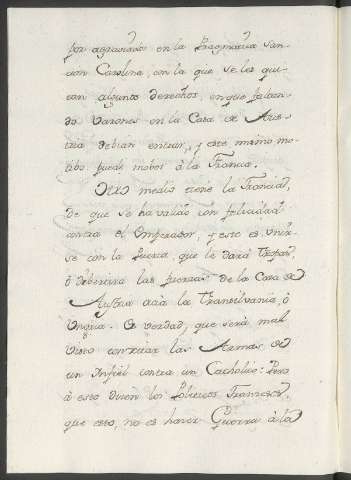 por agraviados en la Pragmatica San-
cion Carolina, con la que se les qui-
tan algunos derechos, en que faltan-
do Varones en la Casa de Aus-
tria debian entrar, y este mismo mo-
tibo puede mober à la Francia.
Otro medio tiene la Francia,
de que se ha valido con felicidad
contra el Emperador, y este es unir-
se con la Puerta, que le dará Tropas,
ò debertira las fuerzas de la Casa de
Austria acia la Transilvania, ò
Ungria. Es verdad, que será mal
visto concitar las Armas de
un Infiel contra un Catholico: Pero
à esto dicen los Politicos Franceses,
que esto, no es hacer Guerra à la